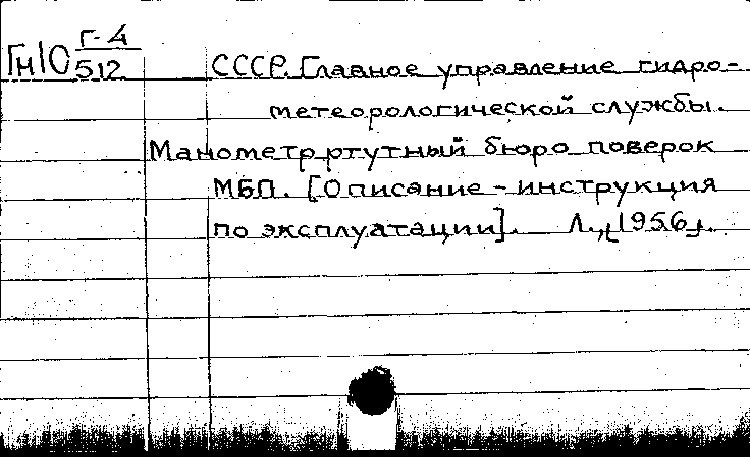 Гн10 Г-4
512
СССР. Главное управление гидро-
метеорологической службы.
Манометр ртутный бюро поверок
МБП. [Описание - инструкция
по эксплуатации]. Л., [1956].